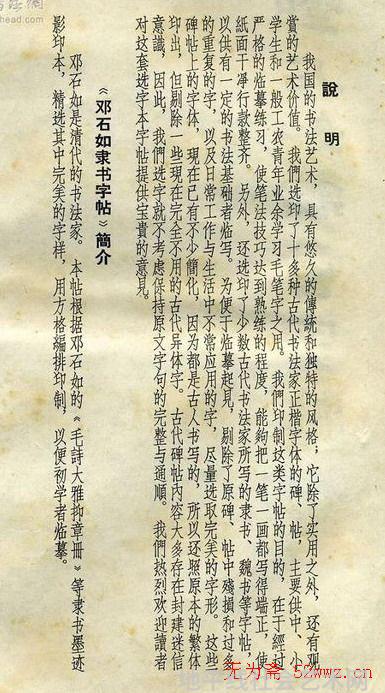 說明
我国的书法艺术，具有悠久的傳統和独特的风格；它除了实用之外，还有观
赏的艺术价值。我們选印了十多种古代书法家正楷字体的碑、帖，主要供中、小
学生和一般工农青年业余学习毛笔字之用。我們印制这类字帖的目的，在于經过
严格的临摹练习，使笔法技巧达到熟练的程度，能夠把一笔一画都写得端正，使
紙面干凈行款整齐。另外，还选印了少数古代书法家所写的隶书、魏书等字帖，
以供有一定的书法基础者临写。为便于临摹起見，剔除了原碑、帖中殘損和过多
的重复的字，以及日常工作与生活中不常应用的字，尽量选取完美的字形。这些
碑帖上的字体，現在已有不少簡化，因为都是古人书写的，所以还照原本的繁体
印出，但剔除一些現在完全不用的古代异体字。古代碑帖内容大多存在封建迷信
意識，因此，我們选字就不考虑保持原文字句的完整与通順。我們热烈欢迎讀者
对这套选字本字帖提供宝貴的意見。
《邓石如隶书字帖》簡介
邓石如是清代的书法家。本帖根据邓石如的《毛詩大雅抑章冊》等隶书墨迹
影印本，精选其中完美的字样，用方格編排印制，以便初学者临摹。
无为斋 52wwz.cn